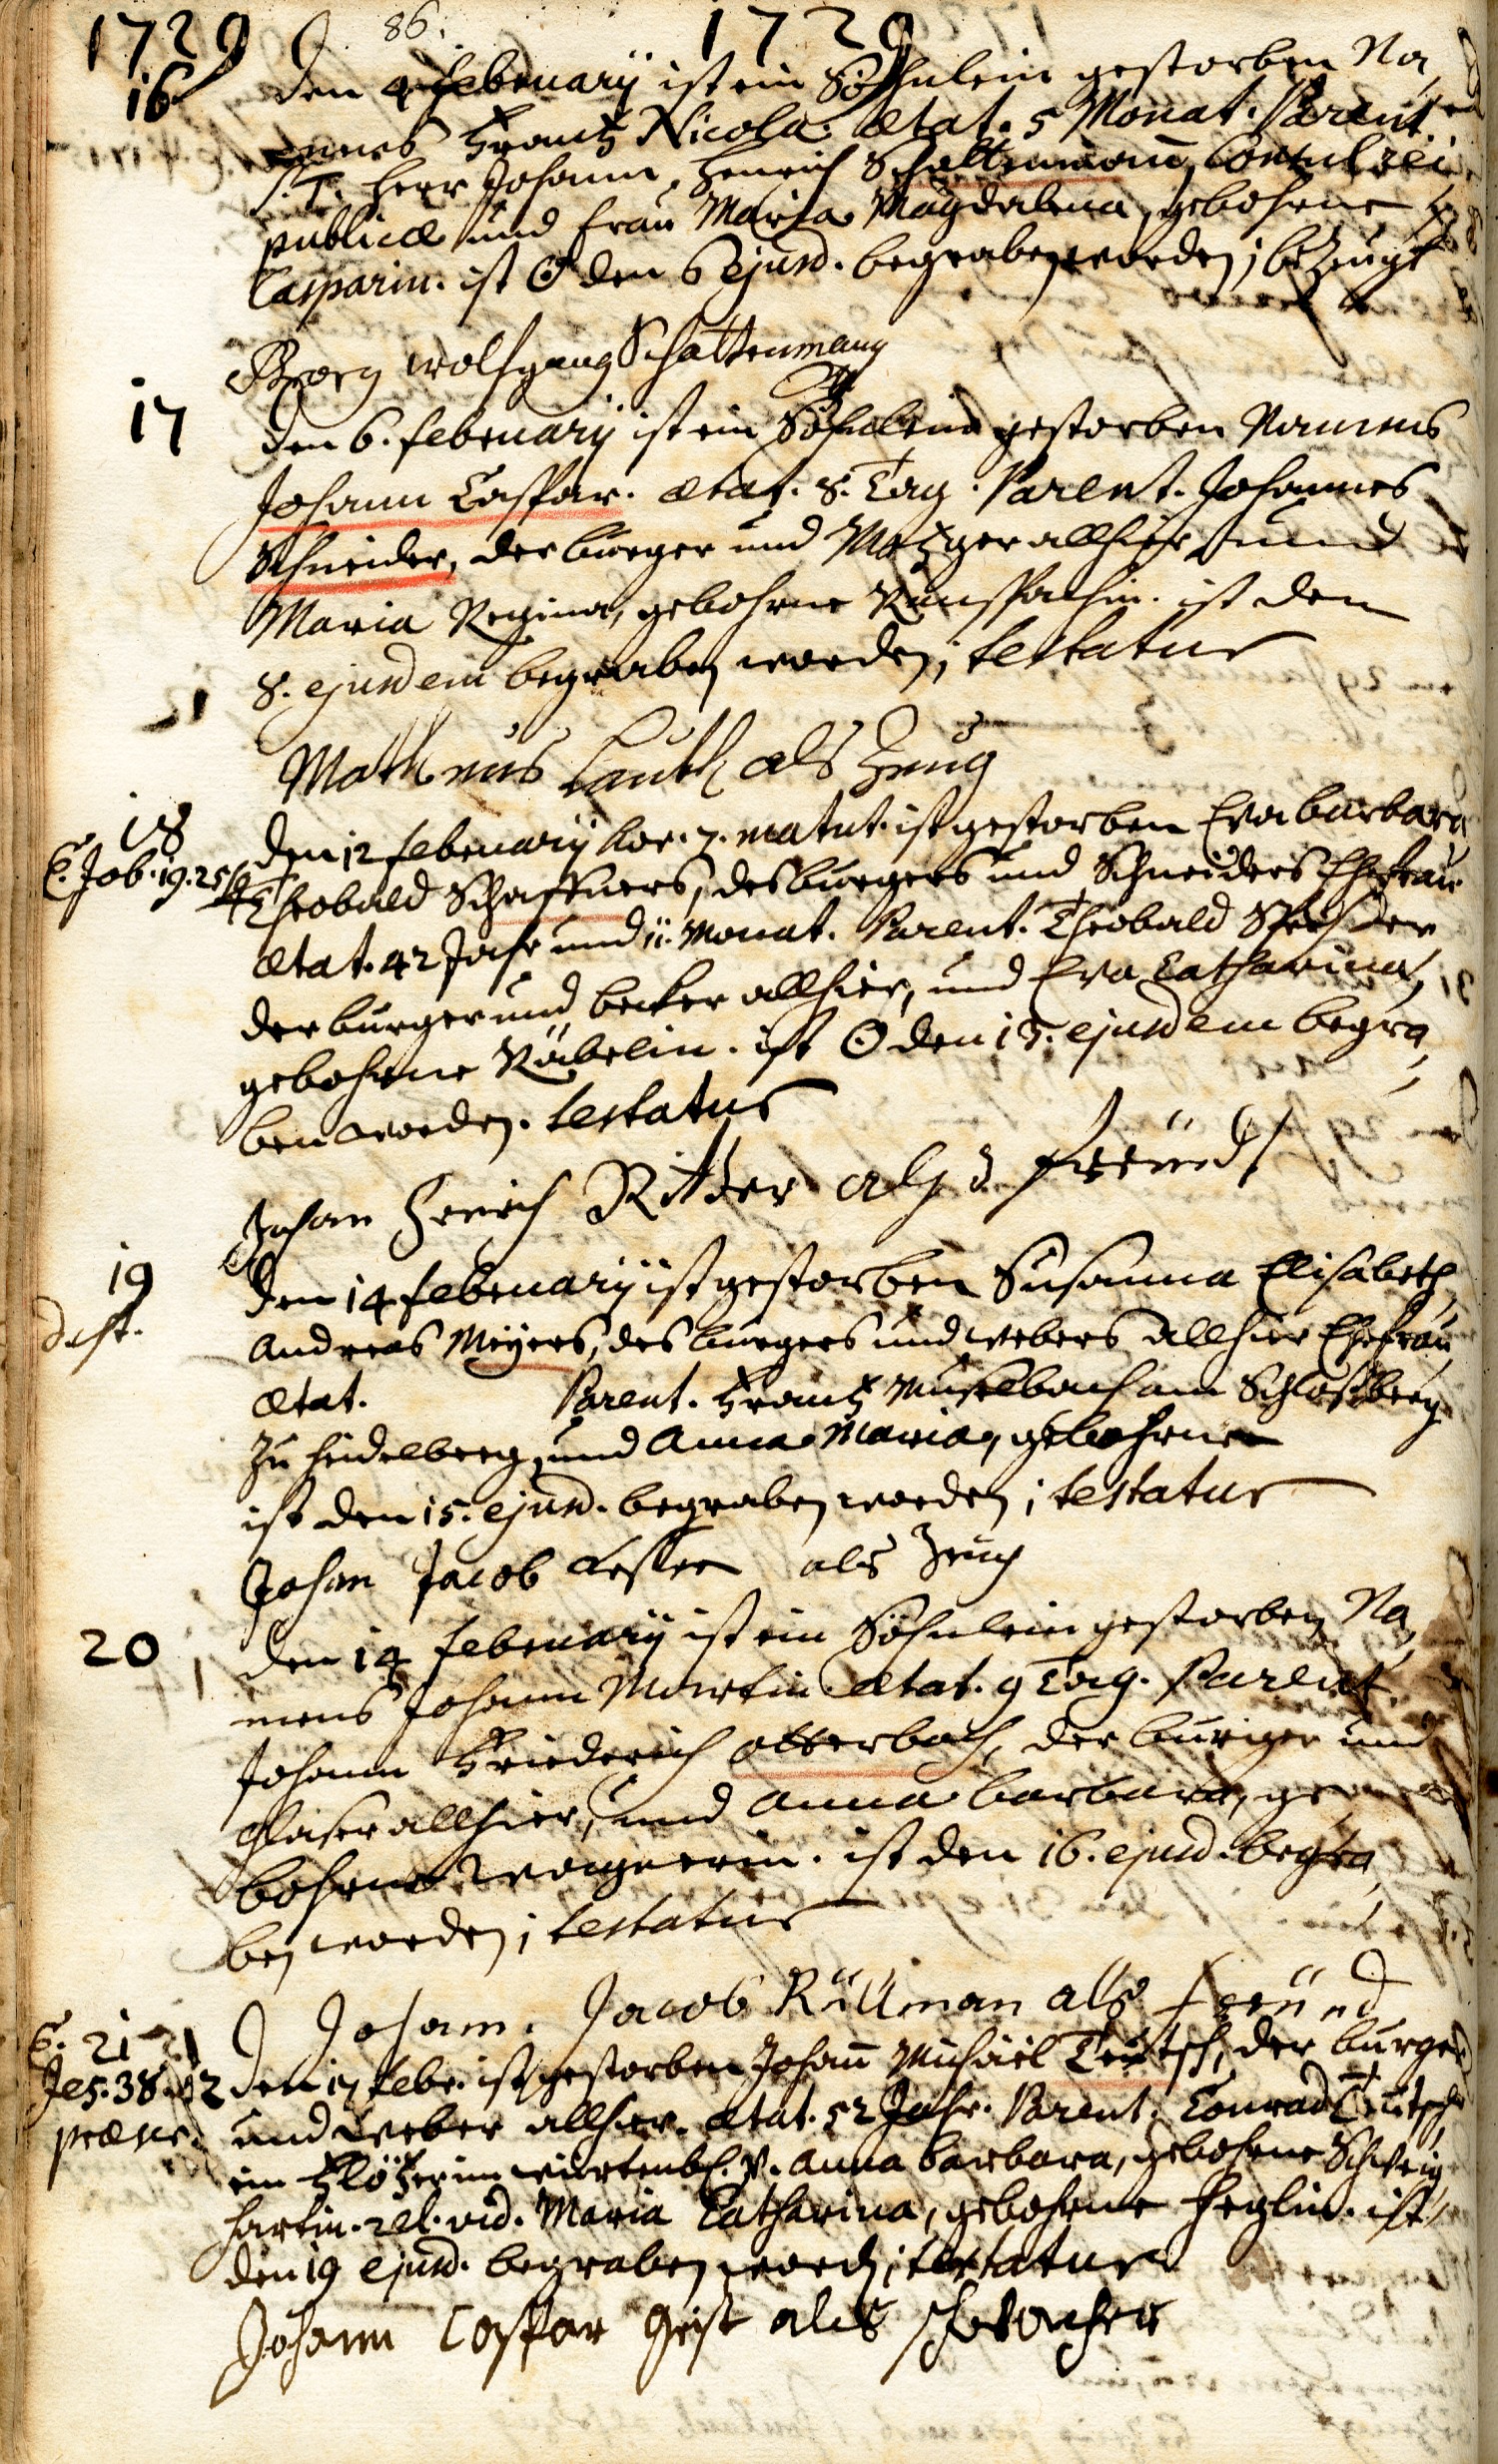 1729 86. 1729
16 den 4 februarij ist ein Söhnlein gestorben Na,
mens Frantz Nicola. ætat. 5 Monat. Parent.
S. T. Herr Johann Henrich Schattenmann, Consul rei
publicæ und Frau Maria Magdalena, gebohrne
Casparin. ist ☉ den 6 ejusd. begraben worden; bezeugt
Georg Wolfgang Schattenmann
17 den 6. februarij ist ein Söhnlein gestorben Namens
Johann Caspar. ætat. 8. Tag. Parent. Johannes
Schneider, der burger und Metzger allhier, und
Maria Regina, gebohrne. ist den
8. ejusdem begraben worden; testatur
Matheus Lauth als Zeug
18 den 12 februarij hor. 7. matut. ist gestorben Eva barbara
C. Job. 19. 25 Theobald Schaffners, des burgers und Schneiders Ehefrau
ætat. 42 Jahr und 11. Monat. Parent. Theobald
der burger und becker allhier, und Eva Catharina,
gebohrne Näbelin. ist ☉ den 13. ejusdem begra,
ben worden. testatur
Johan Henrich Ritter als d. freünd
19 den 14 februarij ist gestorben Susanna Elisabeth,
Andreas Meyers, des burgers und webers allhier Ehefrau
ætat. Parent. Frantz Muselbach am Schloßberg
zu Heidelberg, und Anna Maria, gebohrne
ist den 15. ejusd. begraben worden; testatur
Johan Jacob als Zeug
20 den 14 februarij ist ein Söhnlein gestorben Na,
mens Johann Martin. ætat. 9 Tag. Parent.
Johann Friederich Otterbach, der burger und
Glaser allhier, und Anna barbara, ge
bohrne Wagnerin. ist den 16. ejusd. begra,
ben worden; testatur
Johann Jacob Rüllman als freünd
C. 21
Jes. 38. 12 den 17 febr. ist gestorben Johann Michaël Teutsch, der burger
und weber allhier. ætat. 52 Jahr. Parent. Conrad Teutsch,
ein Flötzer im würtenb. u. Anna barbara, gebohrne Schweig,
hartin. rel. vid. Maria Catharina, gebohrne Heglin. ist
den 19 ejusd. begraben word; testatur
Johann Caspar Geist als schwacher